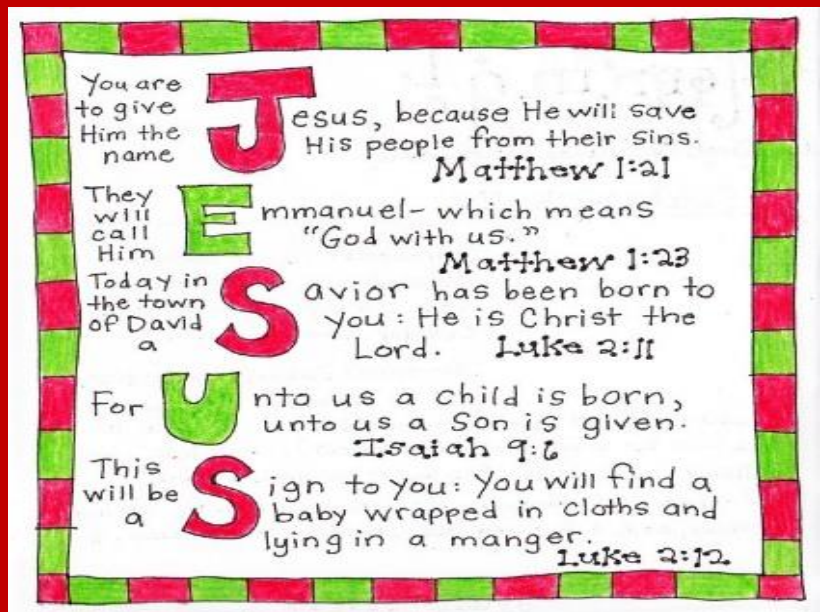 You are
to give
Him the
name
Jesus, because He will save
His people from their sins.
Matthew 1:21
They
will
call
Him
Emmanuel- which means
"God with us."
Matthew 1:23
Today in
the town
of David
a
Savior has been born to
you: He is Christ the
Lord. Luke 2:11
For Unto us a child is born,
unto us a Son is given.
Isaiah 9:6
This
will be
a
Sign to you: You will find a
baby wrapped in cloths and
lying in a manger.
Luke 2:12